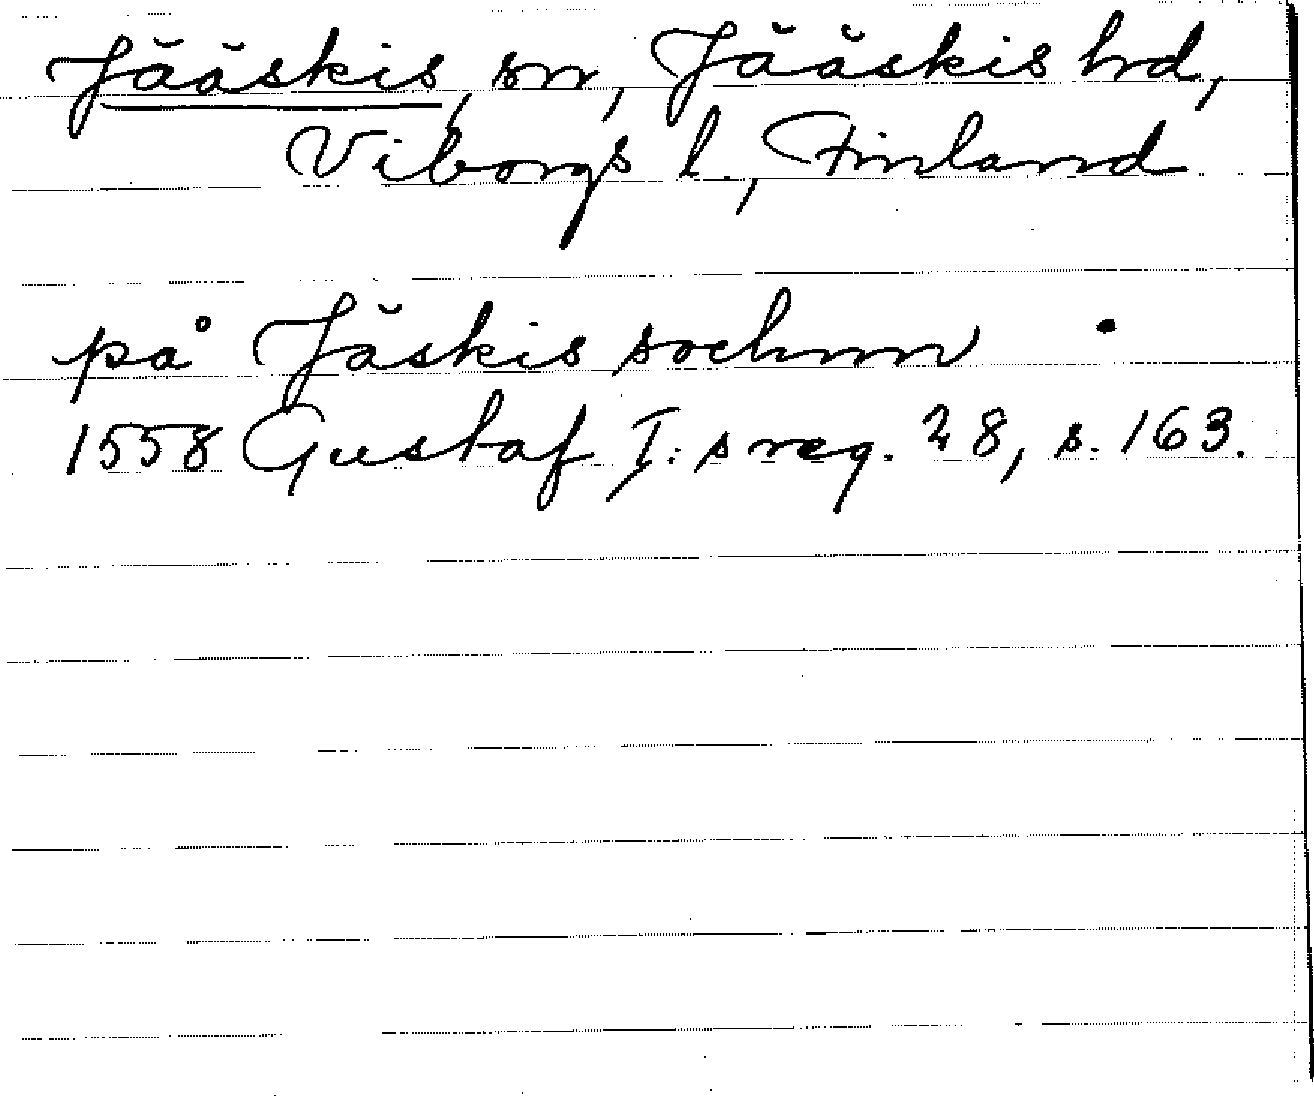 Jääskis, sn, Jääskis hrd,
Viborgs l., Finland
på Jäskis sochnn
1558 Gustaf I:s reg. 28, s. 163.